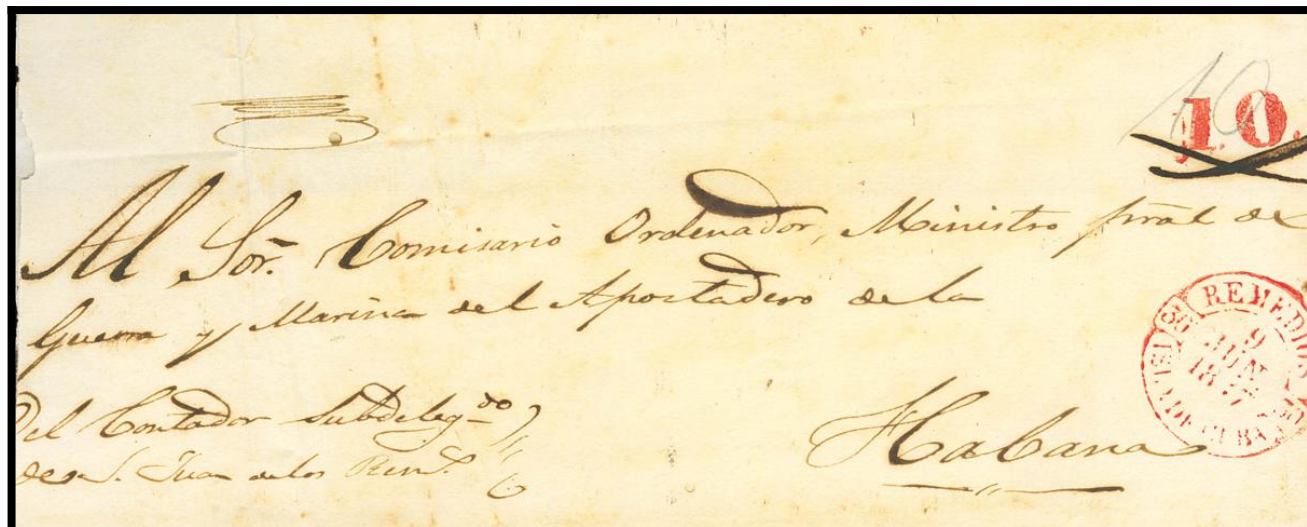 10
10.
R.
Al Sor. Comisario Ordenador, Ministro pral de
Guerra y Marina del Apostadero de la
Habana
Del Contador Subdelegdo
de S. Juan de los Rems.
REMEDIOS
9
JUN
18
ISLA DE CUBA